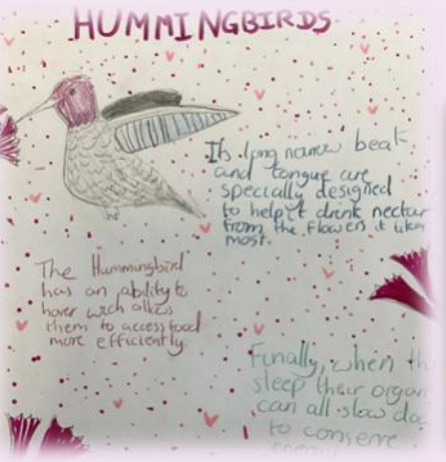 HUMMINGBIRDS
Its long narrow beak
and tongue are
specially designed
to help it drink nectar
from the flowers it likes
most.
The Hummingbird
has an ability to
hover wich allows
them to access food
more efficiently.
Finally, when th
sleep their organ
can all slow do
to conserve
energy